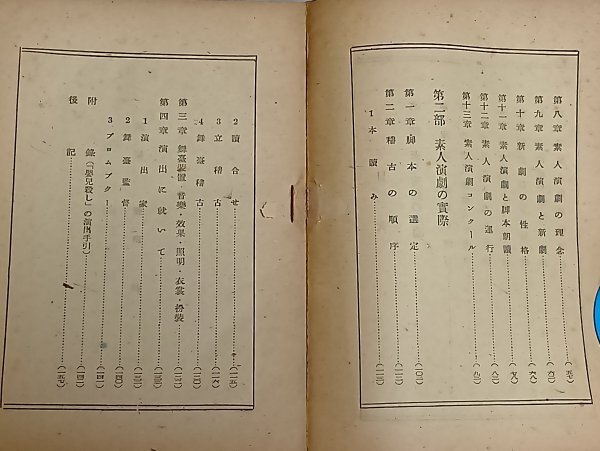 第八章 素人演劇の理念……(五七)
第九章 素人演劇と新劇……(六〇)
第十章 新劇の性格……(六八)
第十一章 素人演劇と脚本朗讀……(七八)
第十二章 素人演劇の運行……(八二)
第十三章 素人演劇コンクール……(九一)
第二部 素人演劇の實際
第一章 脚本の選定……
第二章 稽古の順序……
1 本讀み……
2 讀合せ……(一一五)
3 立稽古……(一一六)
4 舞臺稽古……(一二〇)
第三章 舞臺裝置・音樂・效果・照明・衣裳・扮裝
第四章 演出に就いて……
1 演出家……
2 舞臺監督……(一四〇)
3 プロムプター……(一四一)
附錄(「嬰兒殺し」の演出手引)……
後記……(一五七)